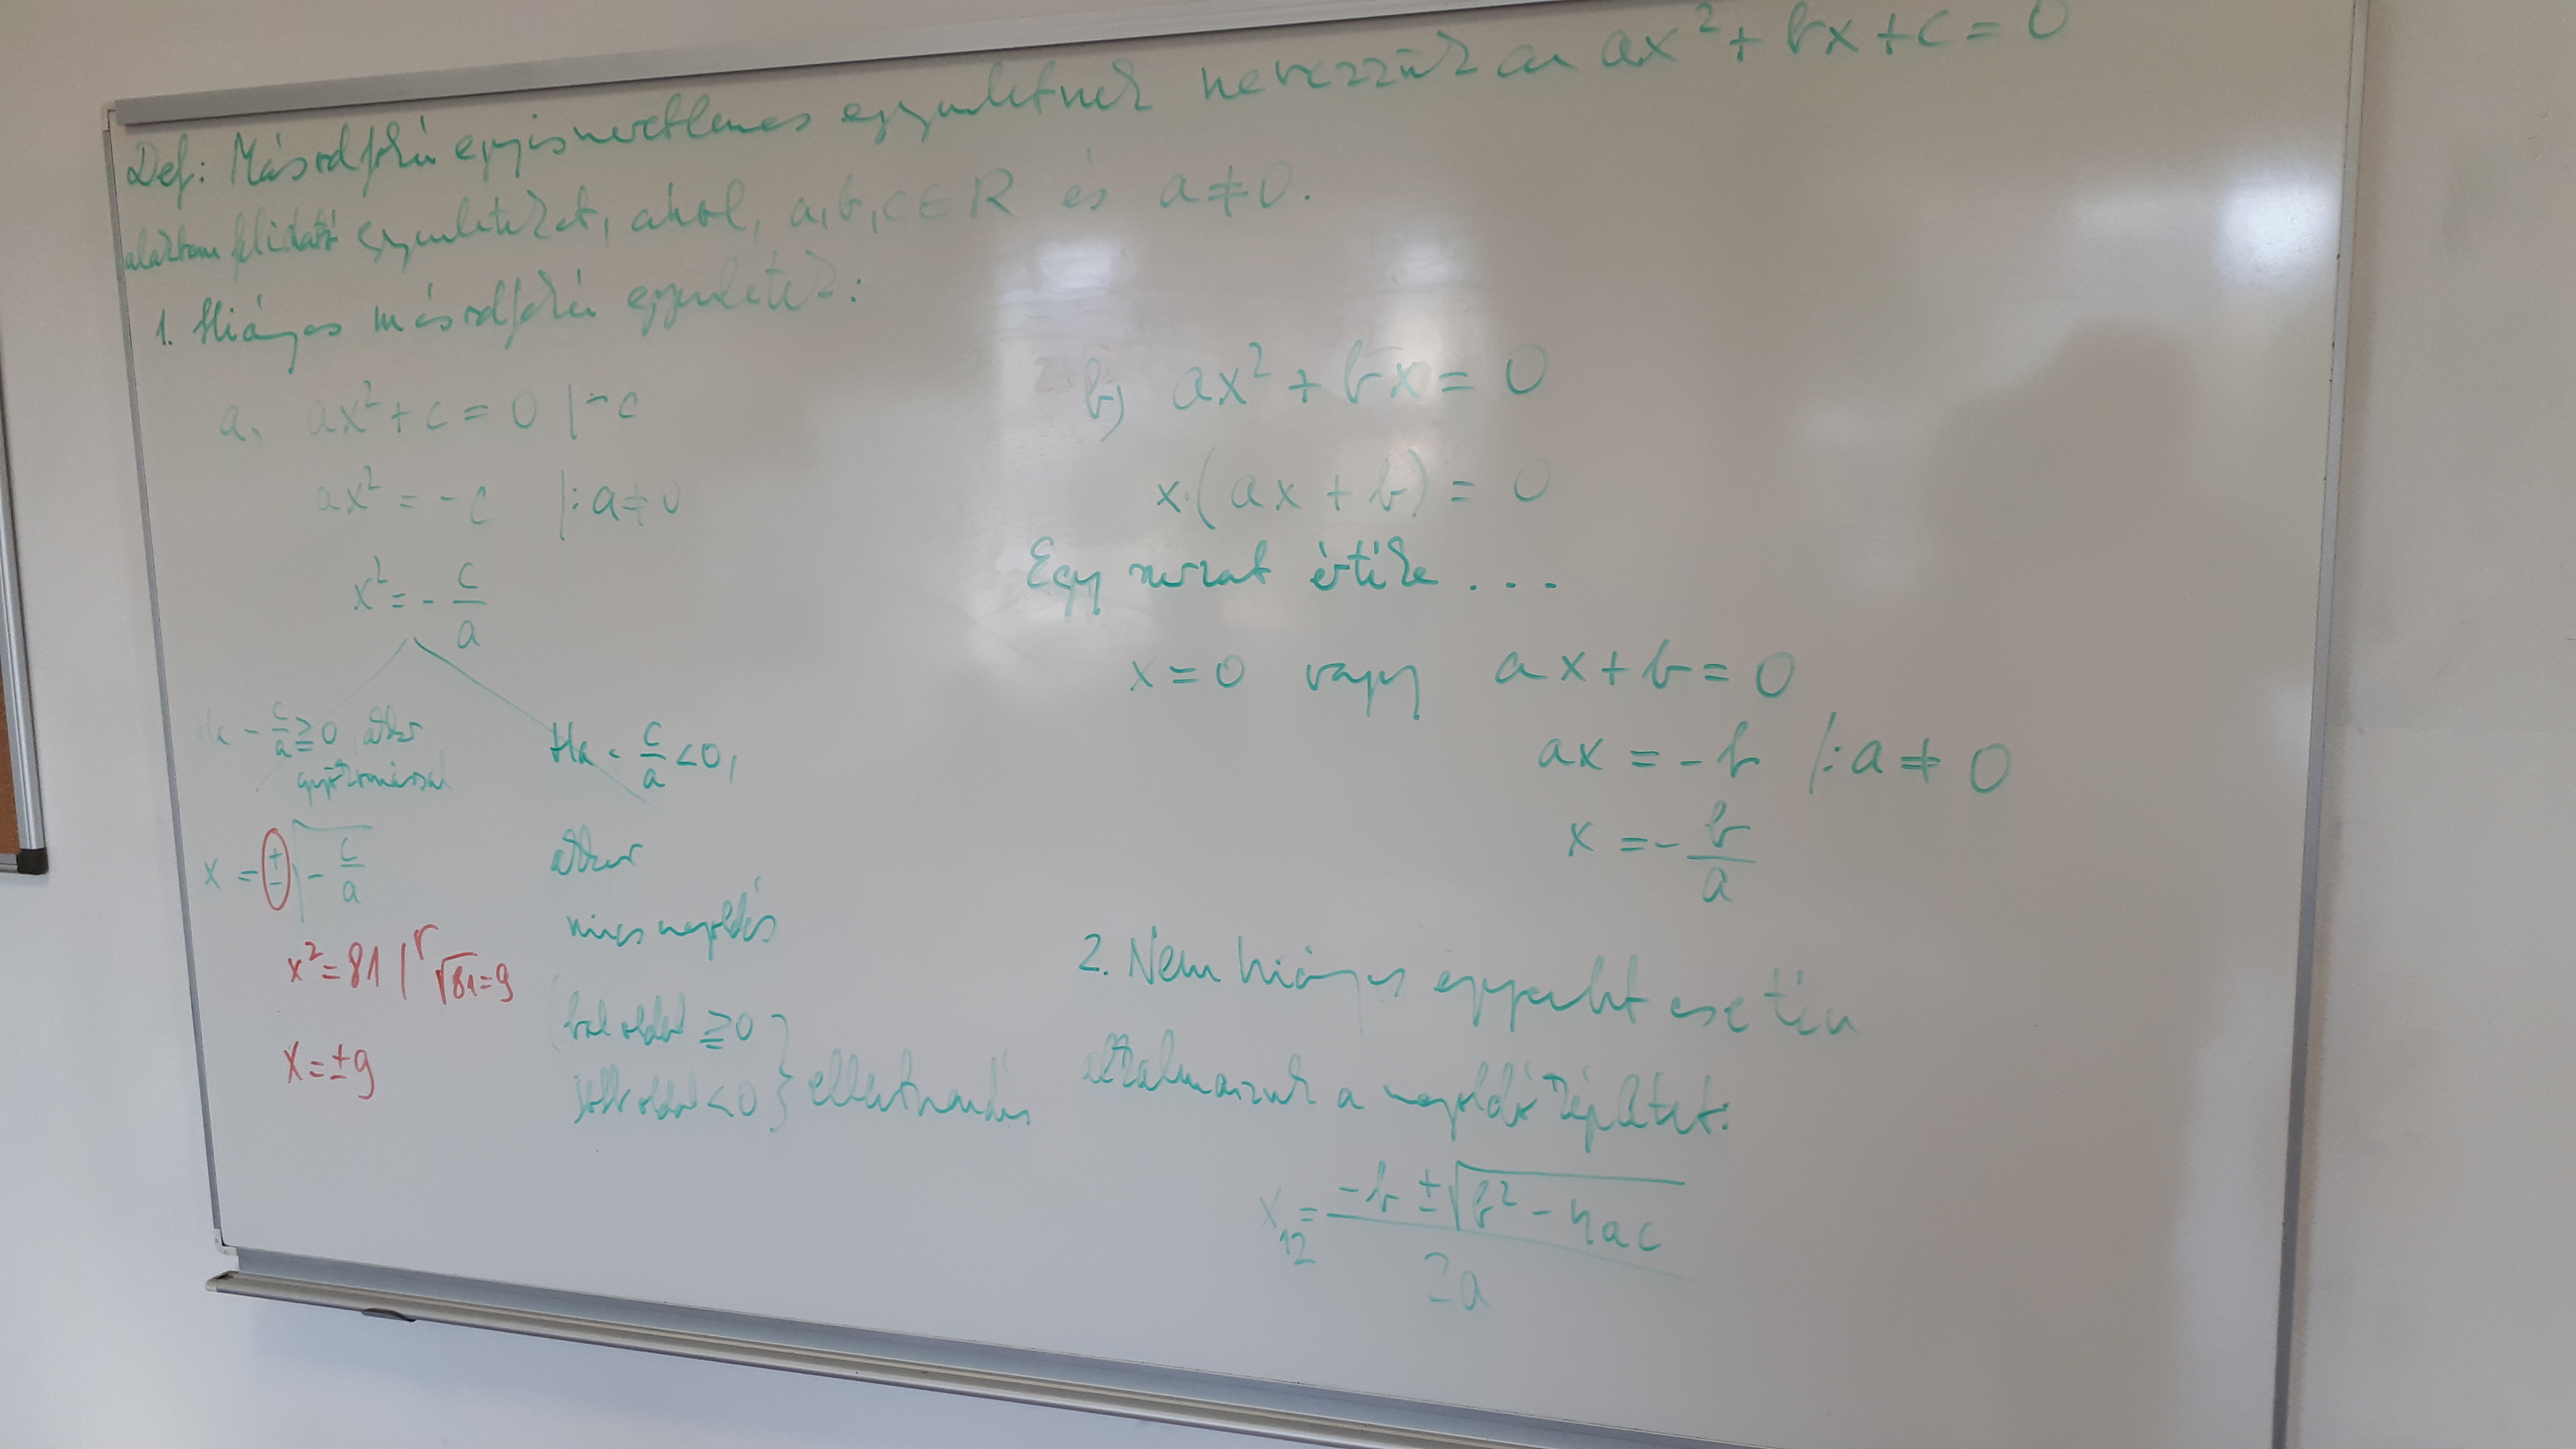 Def: Másodfokú egyismeretlenes egyenletnek nevezzük az ax² + bx + c = 0
alakban felírható egyenleteket, ahol, a, b, c ∈ R és a ≠ 0.
1. Hiányos másodfokú egyenletek:
a, ax² + c = 0 |-c
ax² = -c |:a≠0
x² = -c/a
Ha -c/a ≥ 0 akkor
gyökvonással
x = ±√(-c/a)
x² = 81 |√ √81=9
x = ±9
Ha -c/a < 0,
akkor
nincs megoldás
(bal oldal ≥ 0
jobb oldal < 0 } ellentmondás
b) ax² + bx = 0
x·(ax + b) = 0
Egy szorzat értéke ...
x = 0 vagy ax + b = 0
ax = -b |:a ≠ 0
x = -b/a
2. Nem hiányos egyenlet esetén
alkalmazzuk a megoldóképletet:
x₁₂ = (-b ± √(b² - 4ac))/2a